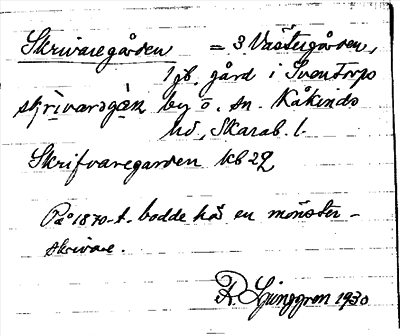 Skrivaregården = 3 Västergården,
1 jb. gård i Sventorps
skrìvarəgạ̀n by o. sn. Kåkinds
hd, Skarab. l.
Skrifvaregarden kb 29
På 1870-t. bodde här en mönster-
skrivare.
R. Ljunggren 1930